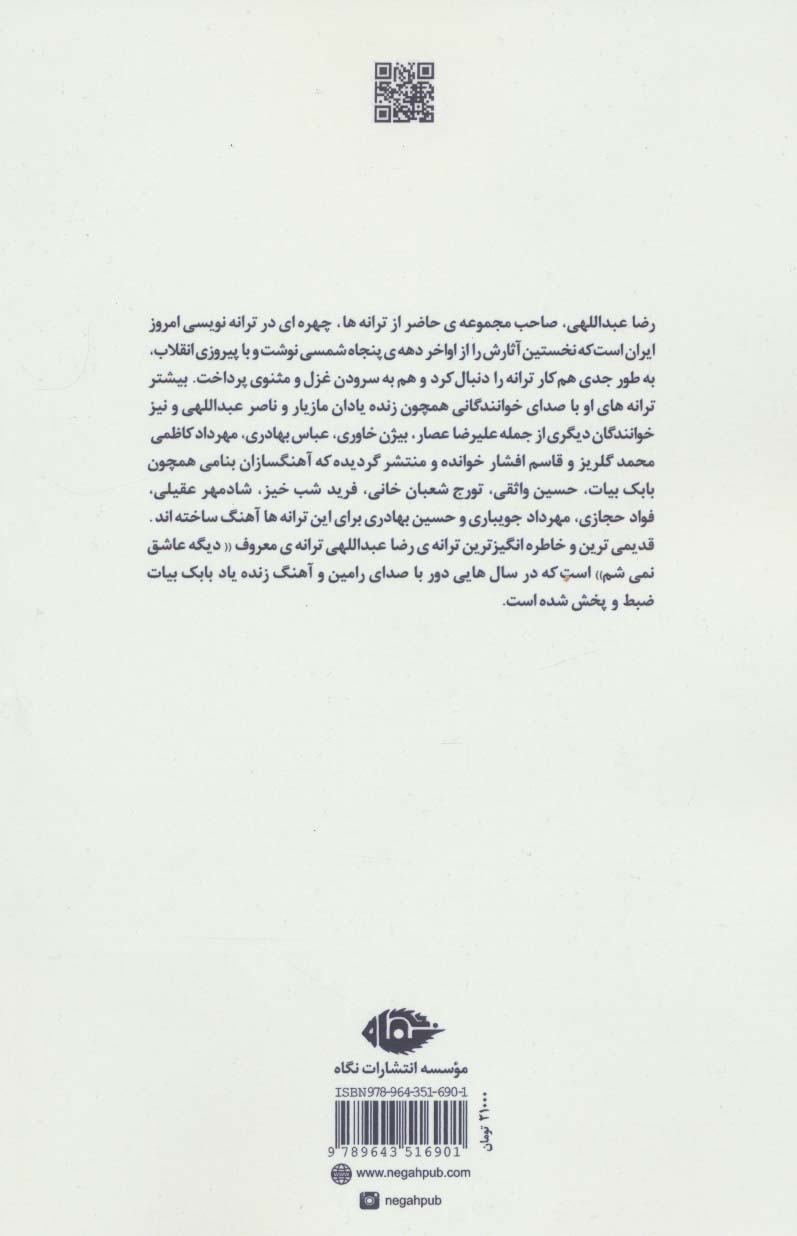 رضا عبداللهی، صاحب مجموعه ی حاضر از ترانه ها، چهره ای در ترانه نویسی امروز
ایران است که نخستین آثارش را از اواخر دهه ی پنجاه شمسی نوشت و با پیروزی انقلاب،
به طور جدی هم کار ترانه را دنبال کرد و هم به سرودن غزل و مثنوی پرداخت. بیشتر
ترانه های او با صدای خوانندگانی همچون زنده یادان مازیار و ناصر عبداللهی و نیز
خوانندگان دیگری از جمله علیرضا عصار، بیژن خاوری، عباس بهادری، مهرداد کاظمی
محمد گلریز و قاسم افشار خوانده و منتشر گردیده که آهنگسازان بنامی همچون
بابک بیات، حسین واثقی، تورج شعبان خانی، فرید شب خیز، شادمهر عقیلی،
فواد حجازی، مهرداد جویباری و حسین بهادری برای این ترانه ها آهنگ ساخته اند.
قدیمی ترین و خاطره انگیزترین ترانه ی رضا عبداللهی ترانه ی معروف «دیگه عاشق
نمی شم» است که در سال هایی دور با صدای رامین و آهنگ زنده یاد بابک بیات
ضبط و پخش شده است.
نگاه
مؤسسه انتشارات نگاه
ISBN978-964-351-690-1
9 789643 516901
۲۱۰۰۰ تومان
www.negahpub.com
negahpub